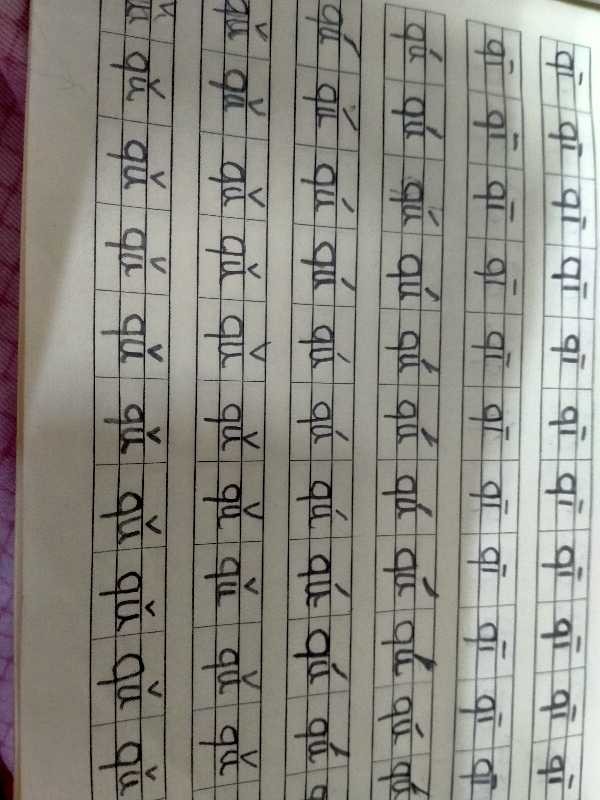 qī qī qī qī qī qī qī qī qī qī qī
qī qī qī qī qī qī qī qī qī qī qī
qú qú qú qú qú qú qú qú qú qú qú
qú qú qú qú qú qú qú qú qú qú
qǔ qǔ qǔ qǔ qǔ qǔ qǔ qǔ qǔ qǔ
qǔ qǔ qǔ qǔ qǔ qǔ qǔ qǔ qǔ